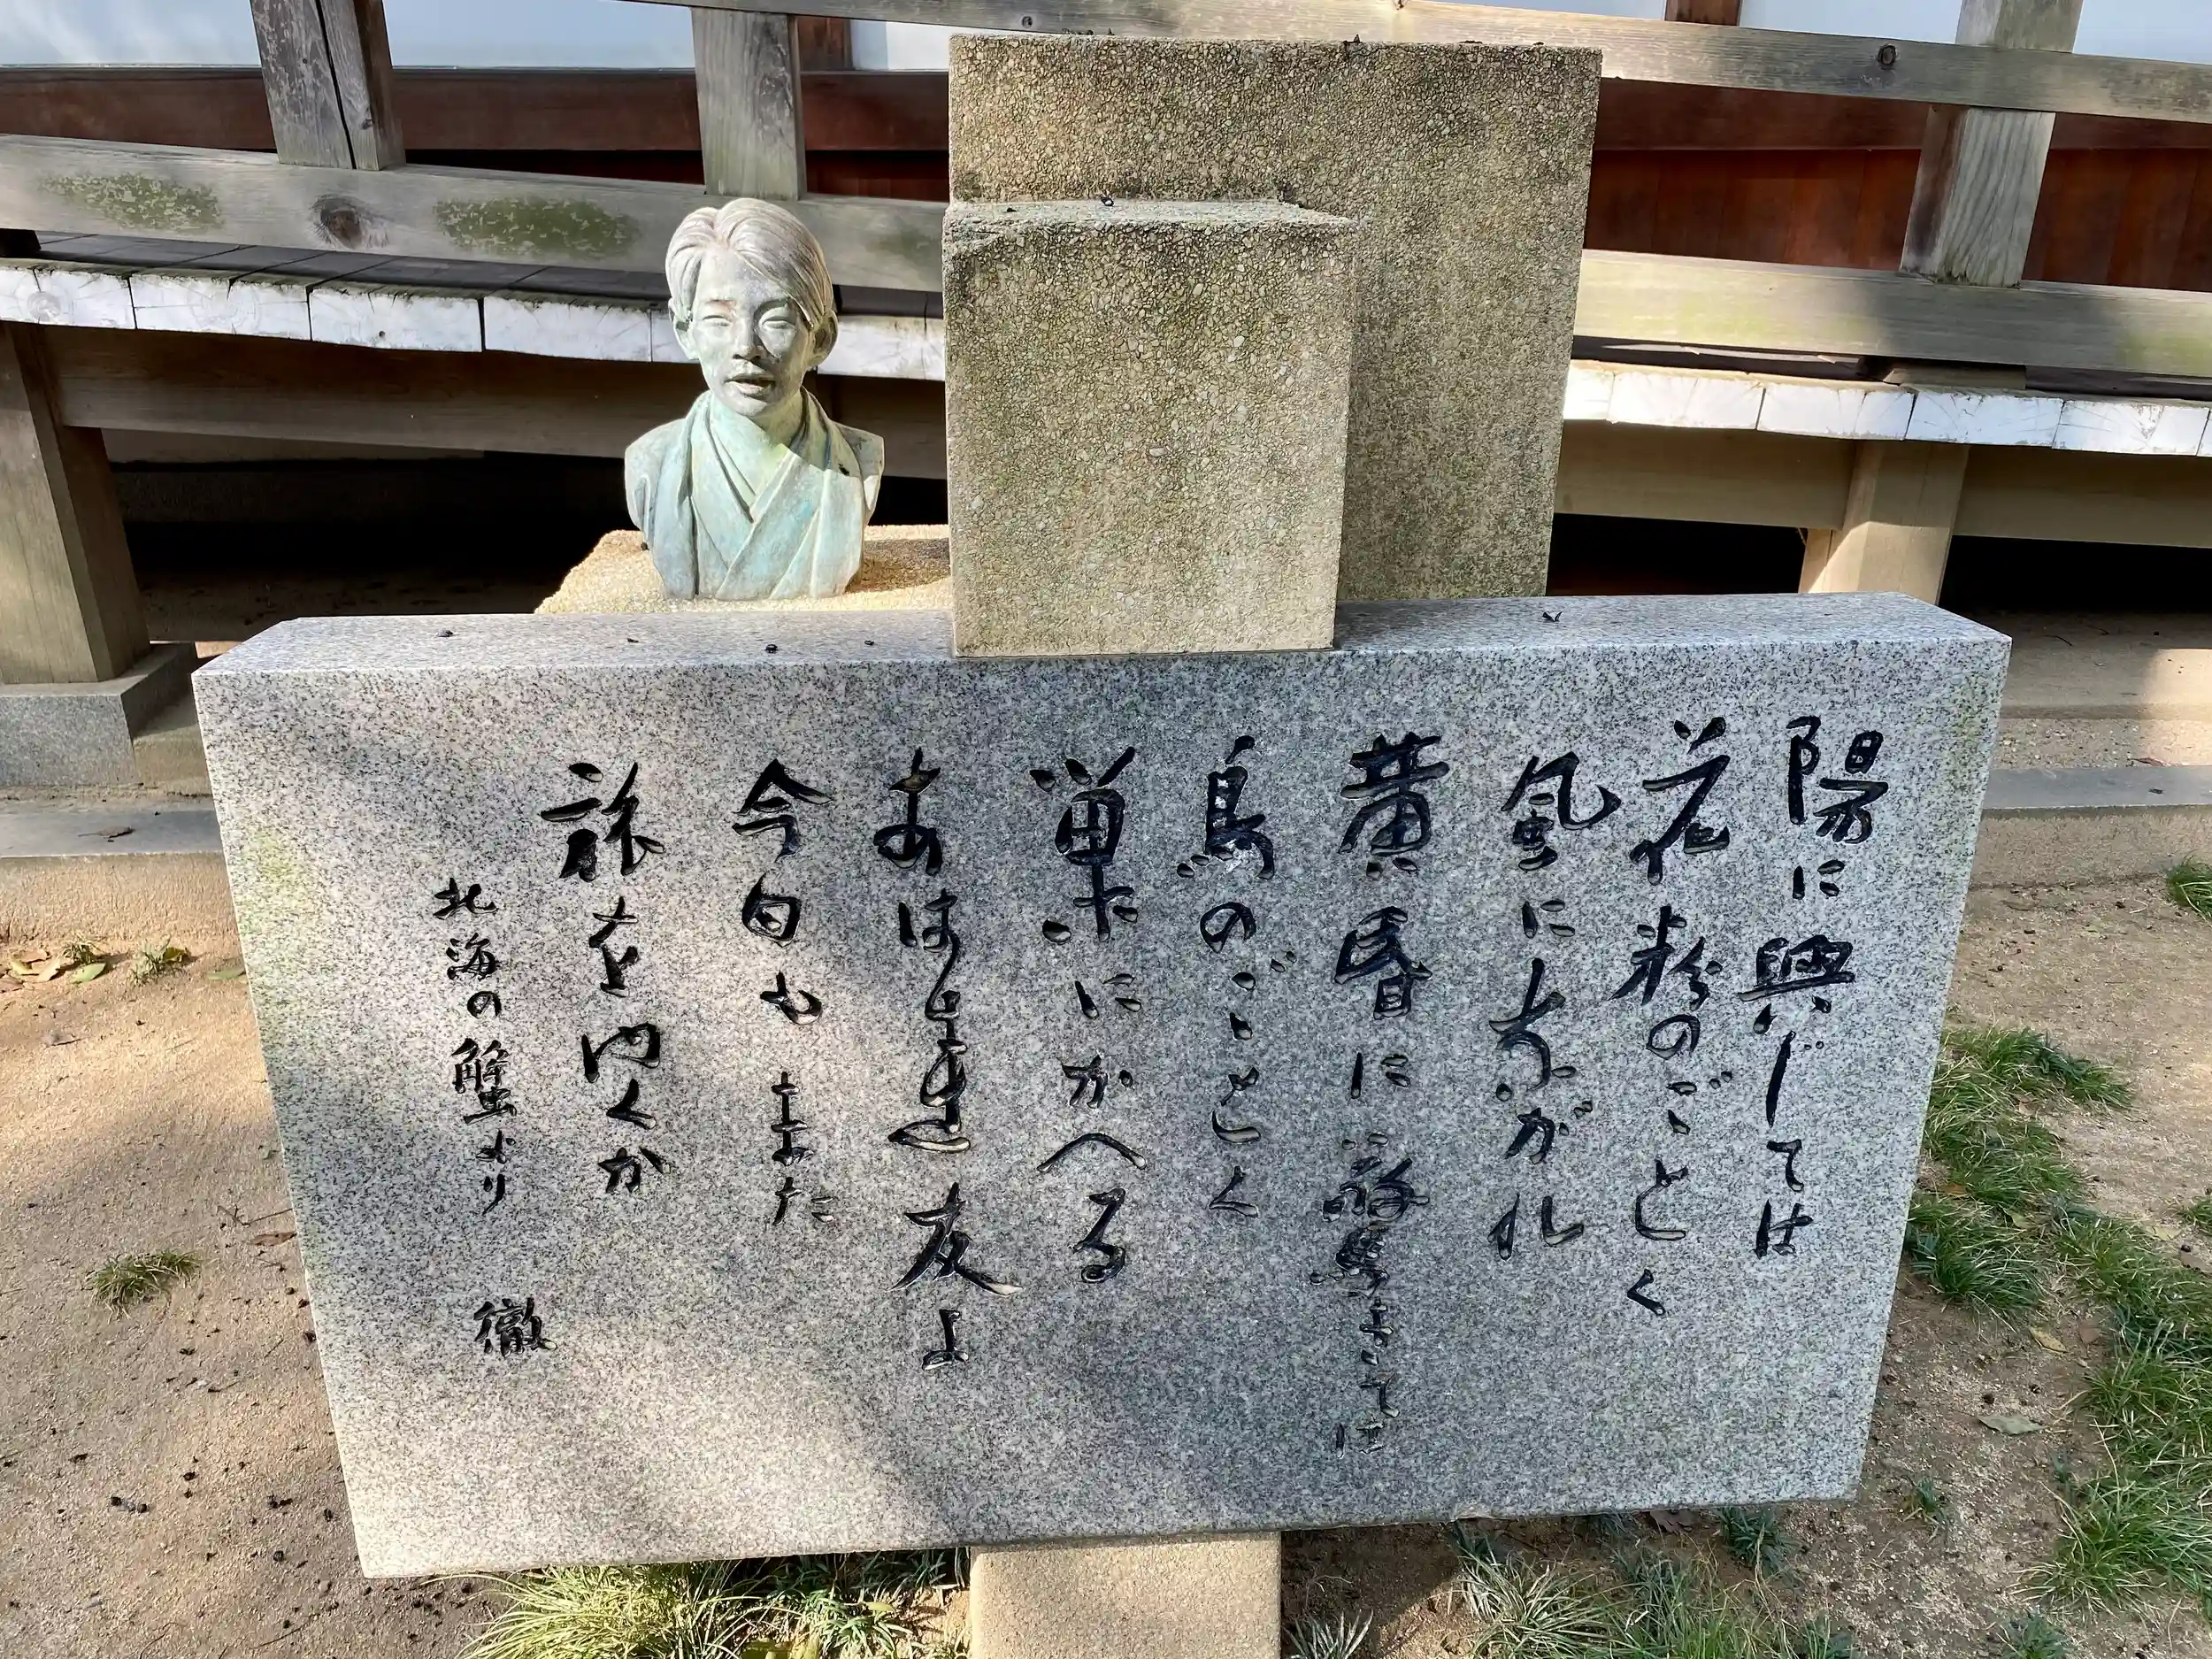 陽に興じては
花粉のごとく
風にながれ
黄昏に
鳥のごとく
巣にかへる
あはき友よ
今日もまた
旅をゆくか
北海の蟹より 徹